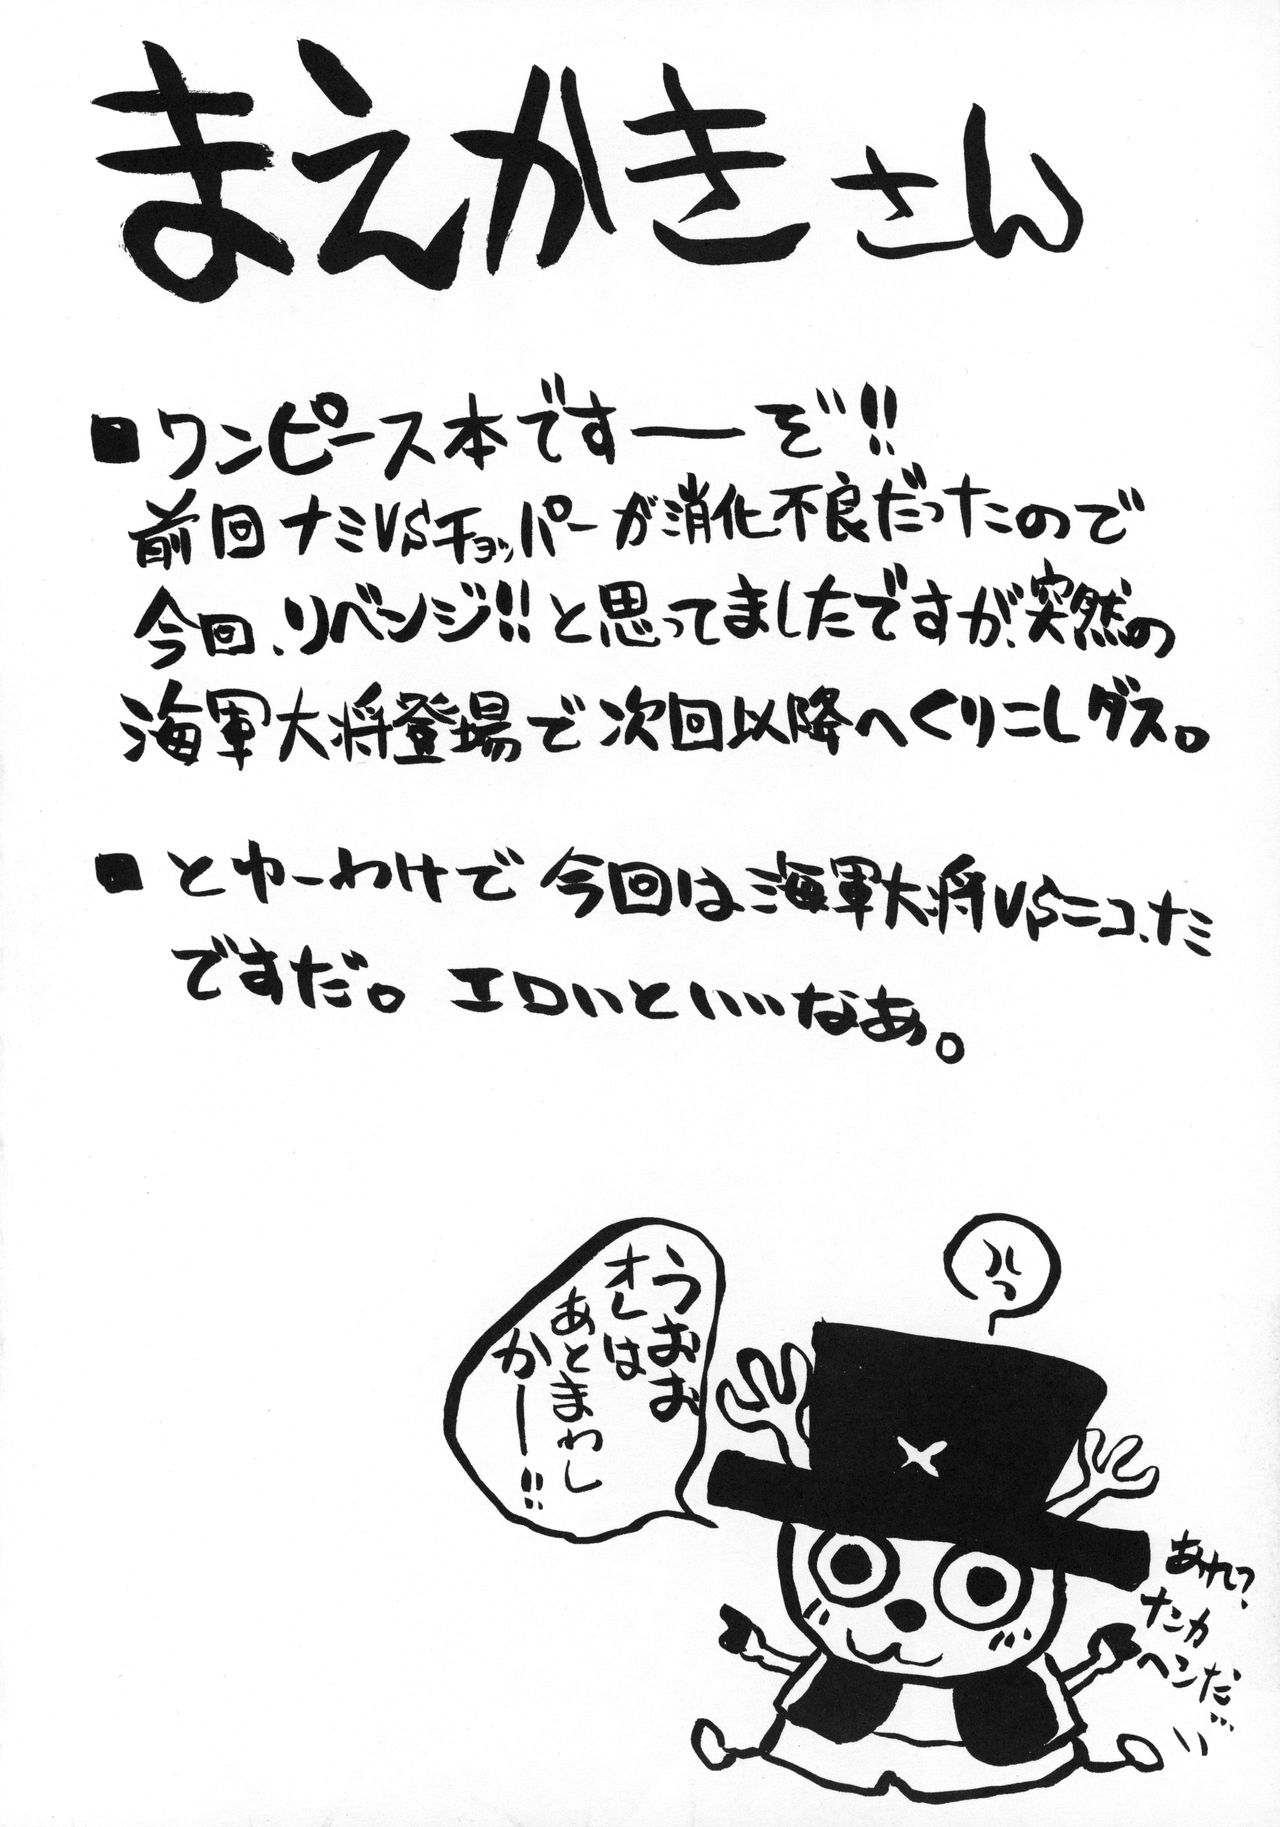 まえかきさん
■ワンピース本ですーーぞ!!
前回ナミVSチョッパーが消化不良だったので
今回、リベンジ!!と思ってましたですが、突然の
海軍大将登場で次回以降へくりこしダス。
■とゆーわけで今回は海軍大将VSニコ、ナミ
ですだ。エロいといいなあ。
うおお
オレは
あとまわし
かー!!
あれっ?
ナンカ
ヘンだ…